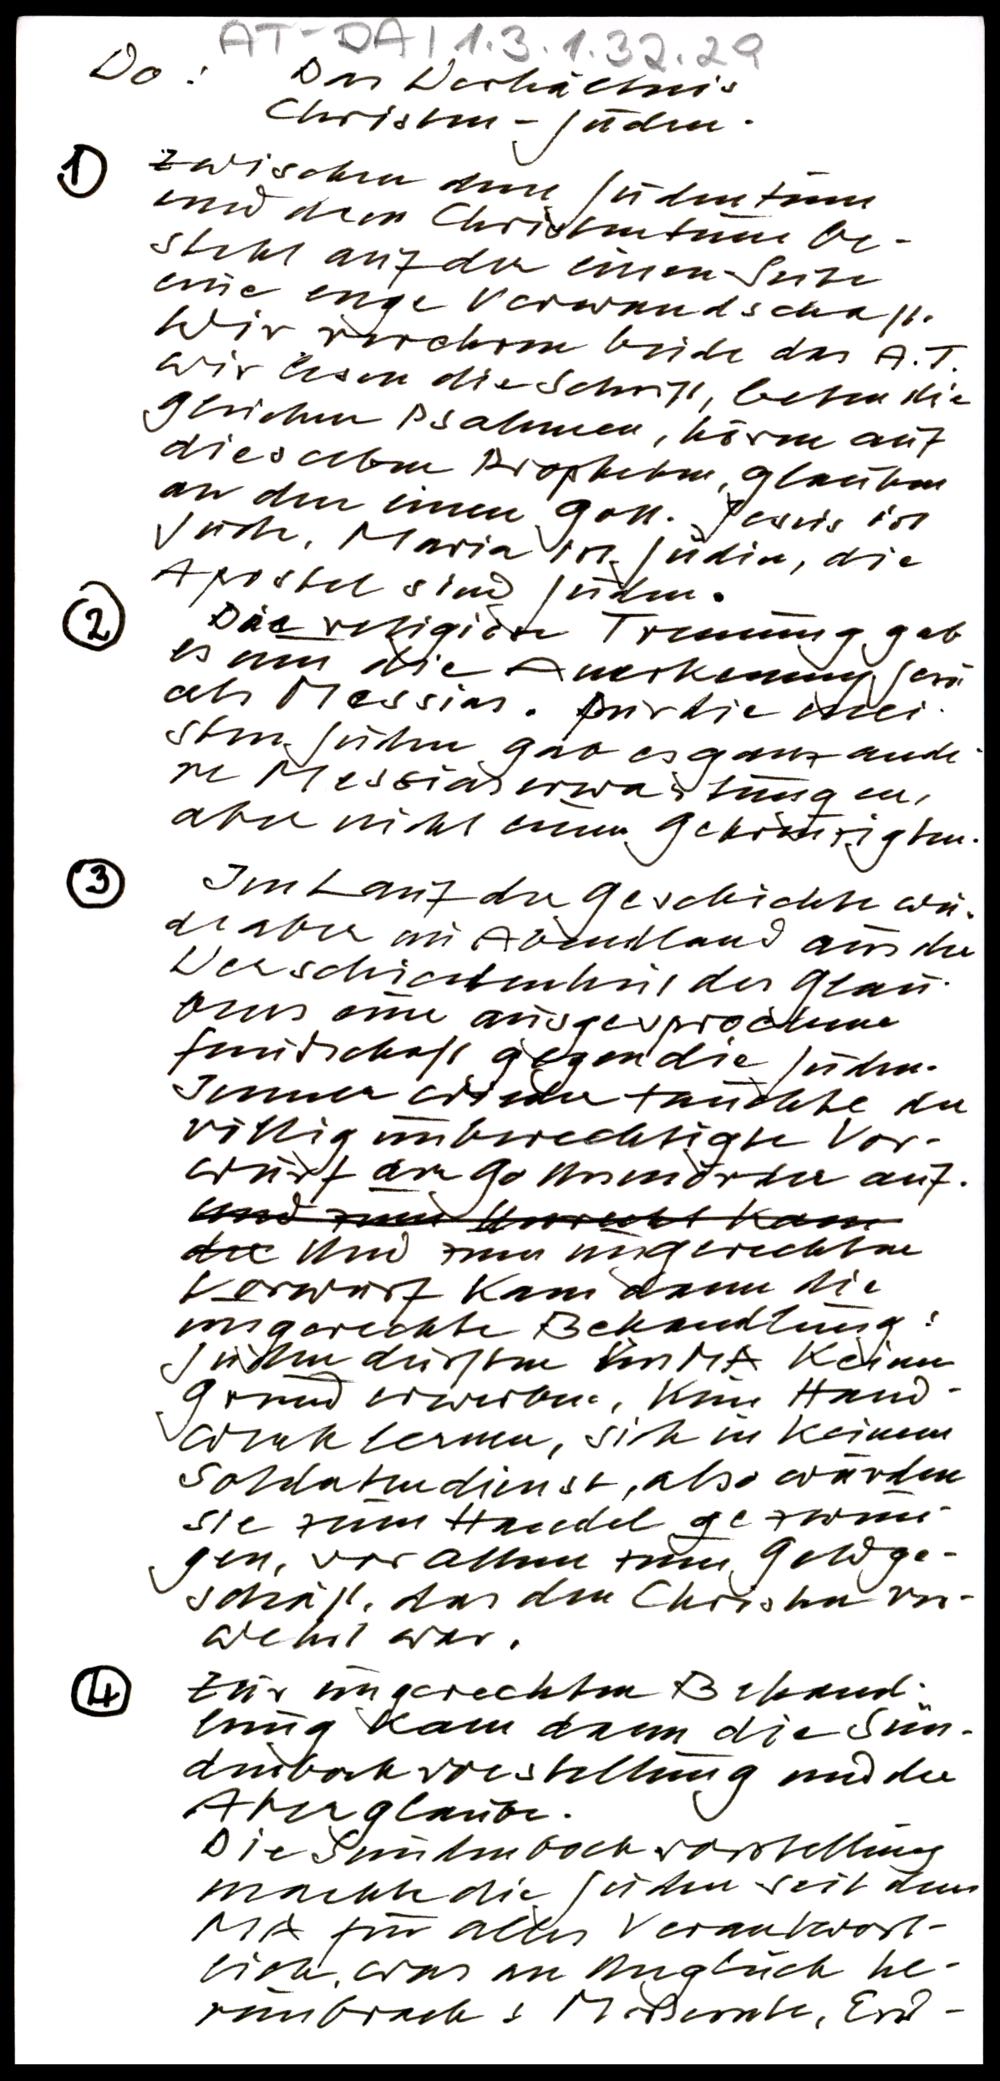 AT-DA | 1.3.1.32.29
Do: Das Verhältnis
Christen - Juden.
1) Zwischen dem Judentum
und dem Christentum be-
steht auf der einen Seite
eine enge Verwandschaft.
Wir verehren beide das A.T.
wir lesen die Schrift, beten die
gleichen Psalmen, hören auf
dieselben Propheten, glauben
an den einen Gott. Jesus ist
Jude, Maria ist Jüdin, die
Apostel sind Juden.
2 Die religiöse Trennung gab
es um die Anerkennung Jesu
als Messias. Für die mei-
sten Juden gab es ganz ande-
re Messiaserwartungen,
aber nicht einen Gekreuzigten.
3 Im Lauf der Geschichte wur-
de aber im Abendland aus der
Verschiedenheit des Glau-
bens eine ausgesprochene
Feindschaft gegen die Juden.
Immer wieder tauchte der
völlig unberechtigte Vor-
wurf der Gottesmörder auf.
und zum Unrecht kam
die Und zum ungerechten
Vorwurf kam dann die
ungerechte Behandlung:
Juden durften im MA keinen
Grund erwerben, kein Hand-
werk lernen, sich in keinem
Soldatendienst, also wurden
sie zum Handel gezwun-
gen, vor allem zum Geldge-
schäft, das den Christen ver-
wehrt war.
4 Zur ungerechten Behand-
lung kam dann die Sün-
denbockvorstellung und der
Aberglaube.
Die Sündenbockvorstellung
machte die Juden seit dem
MA für alles verantwort-
lich, was an Unglück he-
reinbrach: Mißernte, Erd-